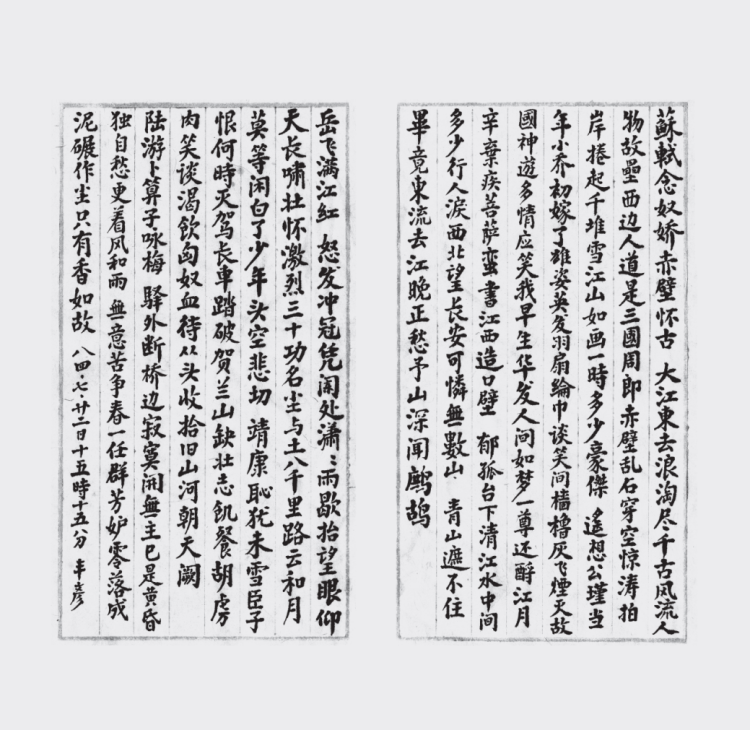 蘇軾念奴嬌赤壁怀古 大江東去浪淘尽千古风流人
物故壘西边人道是三國周郎赤壁乱石穿空惊涛拍
岸捲起千堆雪江山如画一時多少豪傑 遙想公瑾当
年小乔初嫁了雄姿英发羽扇綸巾谈笑间樯橹灰飞煙灭故
國神遊多情应笑我早生华发人间如梦一尊还酹江月
辛棄疾菩萨蛮書江西造口壁 郁孤台下清江水中间
多少行人淚西北望长安可憐無數山 青山遮不住
畢竟東流去江晚正愁予山深闻鹧鸪
岳飞满江红 怒发冲冠凭阑处潇〻雨歇抬望眼仰
天长啸壮怀激烈三十功名尘与土八千里路云和月
莫等闲白了少年头空悲切 靖康恥犹未雪臣子
恨何時灭驾长車踏破贺兰山缺壮志飢餐胡虏
肉笑谈渴飲匈奴血待从头收拾旧山河朝天阙
陆游卜算子咏梅 驿外断桥边寂寞開無主已是黄昏
独自愁更着风和雨 無意苦争春一任群芳妒零落成
泥碾作尘只有香如故 八四·七·廿二日十五時十五分